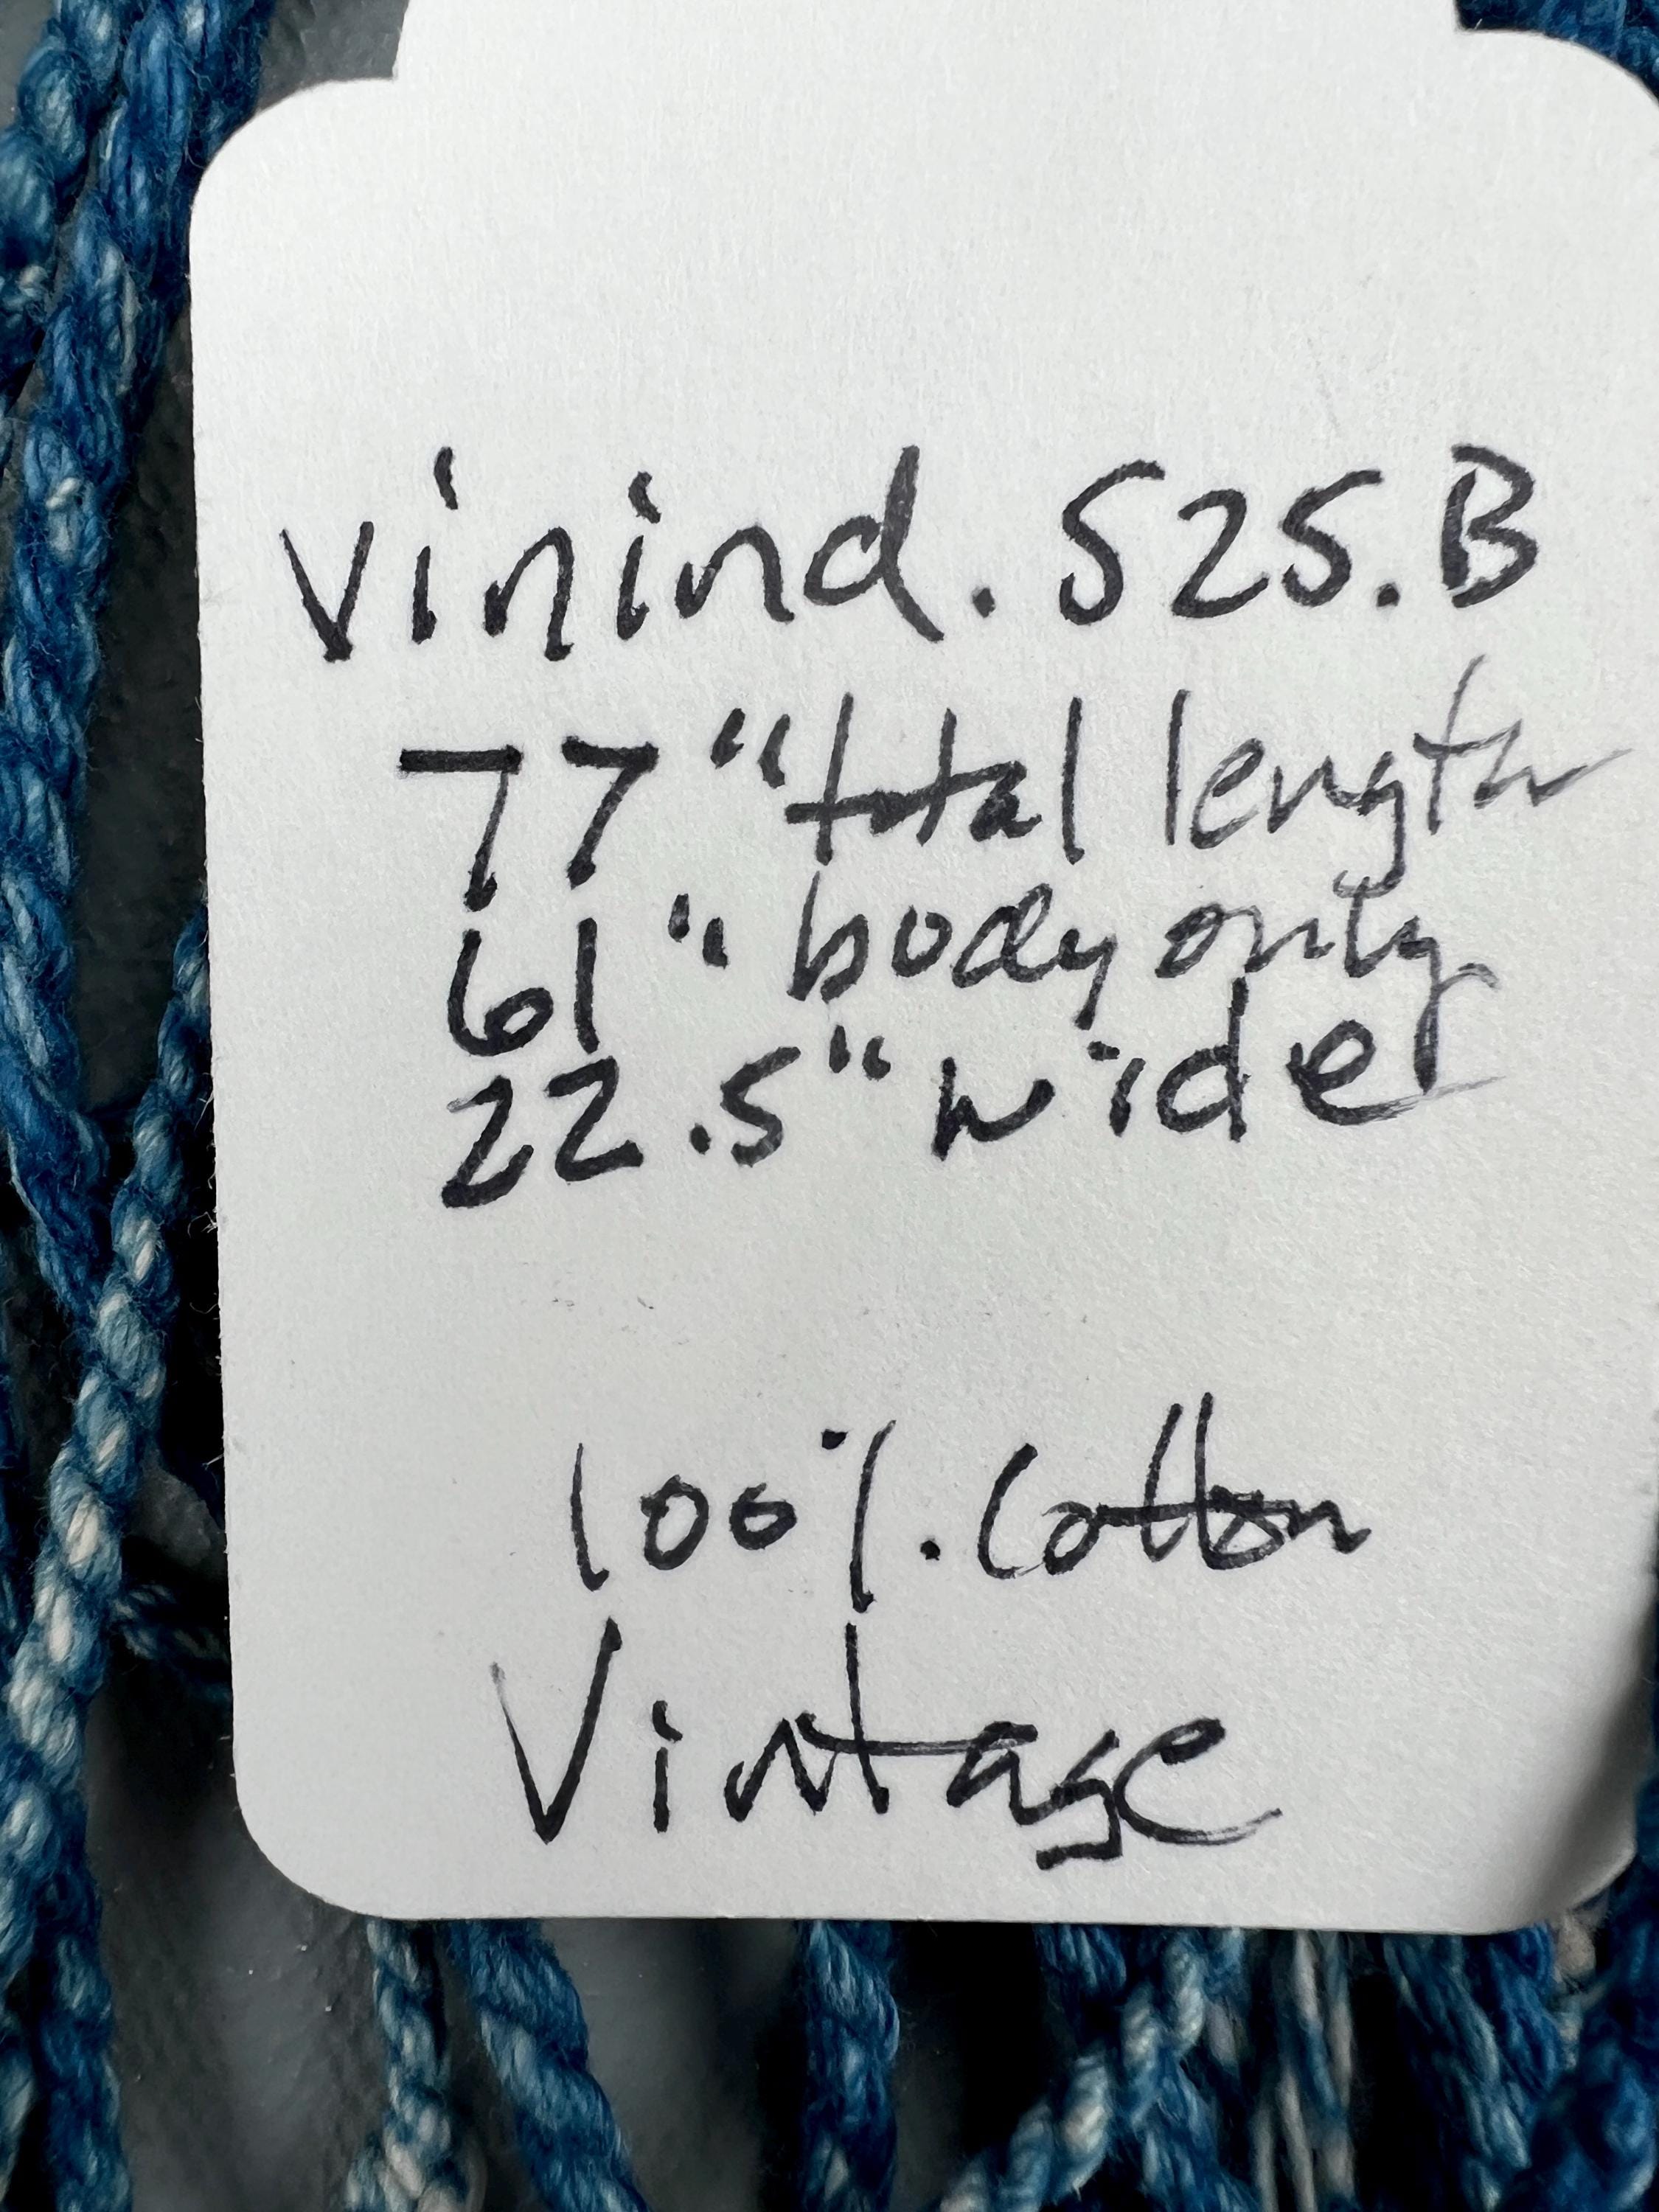 vinind. S25.B
77" total length
61" body only
22.5" wide
100%. Cotton
Vintage